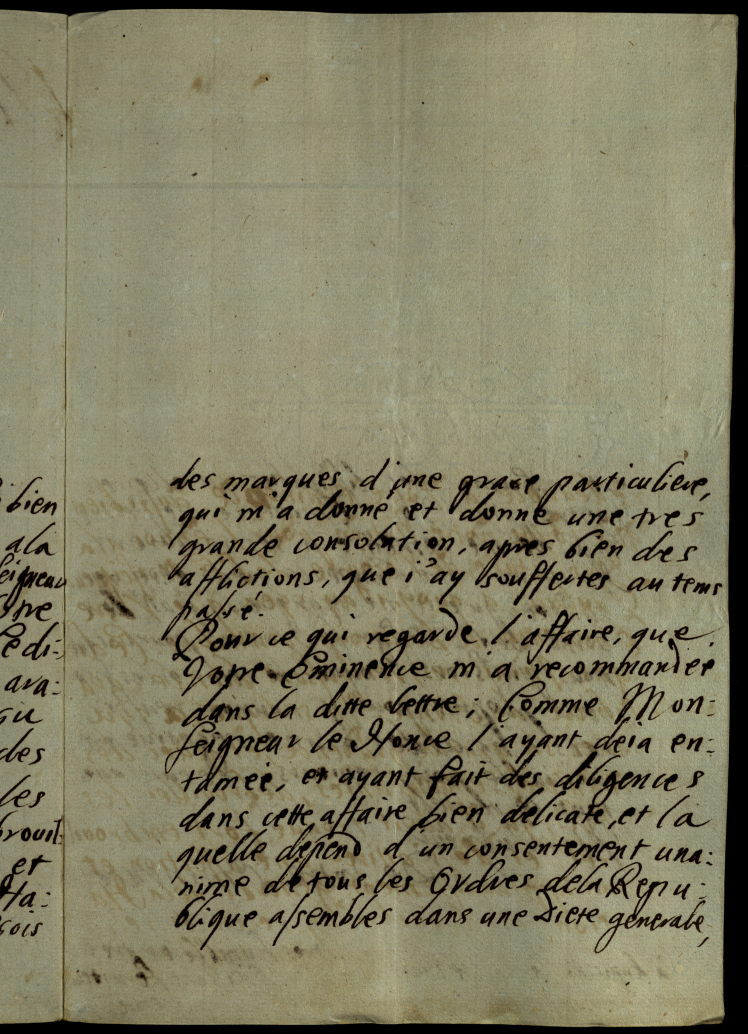 bien
ala
Seigneur
otre
cedi:
ara:
gu
des
les
brouil:
et
Ha:
cois
des marques d'une grace particuliere,
qui m'a donné et donne une tres
grande consolation, apres bien des
afflictions, que i'ay souffertes au tems
passé.
Pour ce qui regarde l'affaire, que
Votre Eminence m'a recommandée
dans la ditte lettre; Comme Mon:
seigneur le Nonce l'ayant deia en:
tamée, et ayant fait des diligences
dans cette affaire bien delicate, et la
quelle depend d'un consentement una:
nime de tous les Ordres dela Repu:
blique assembles dans une Diete generale,